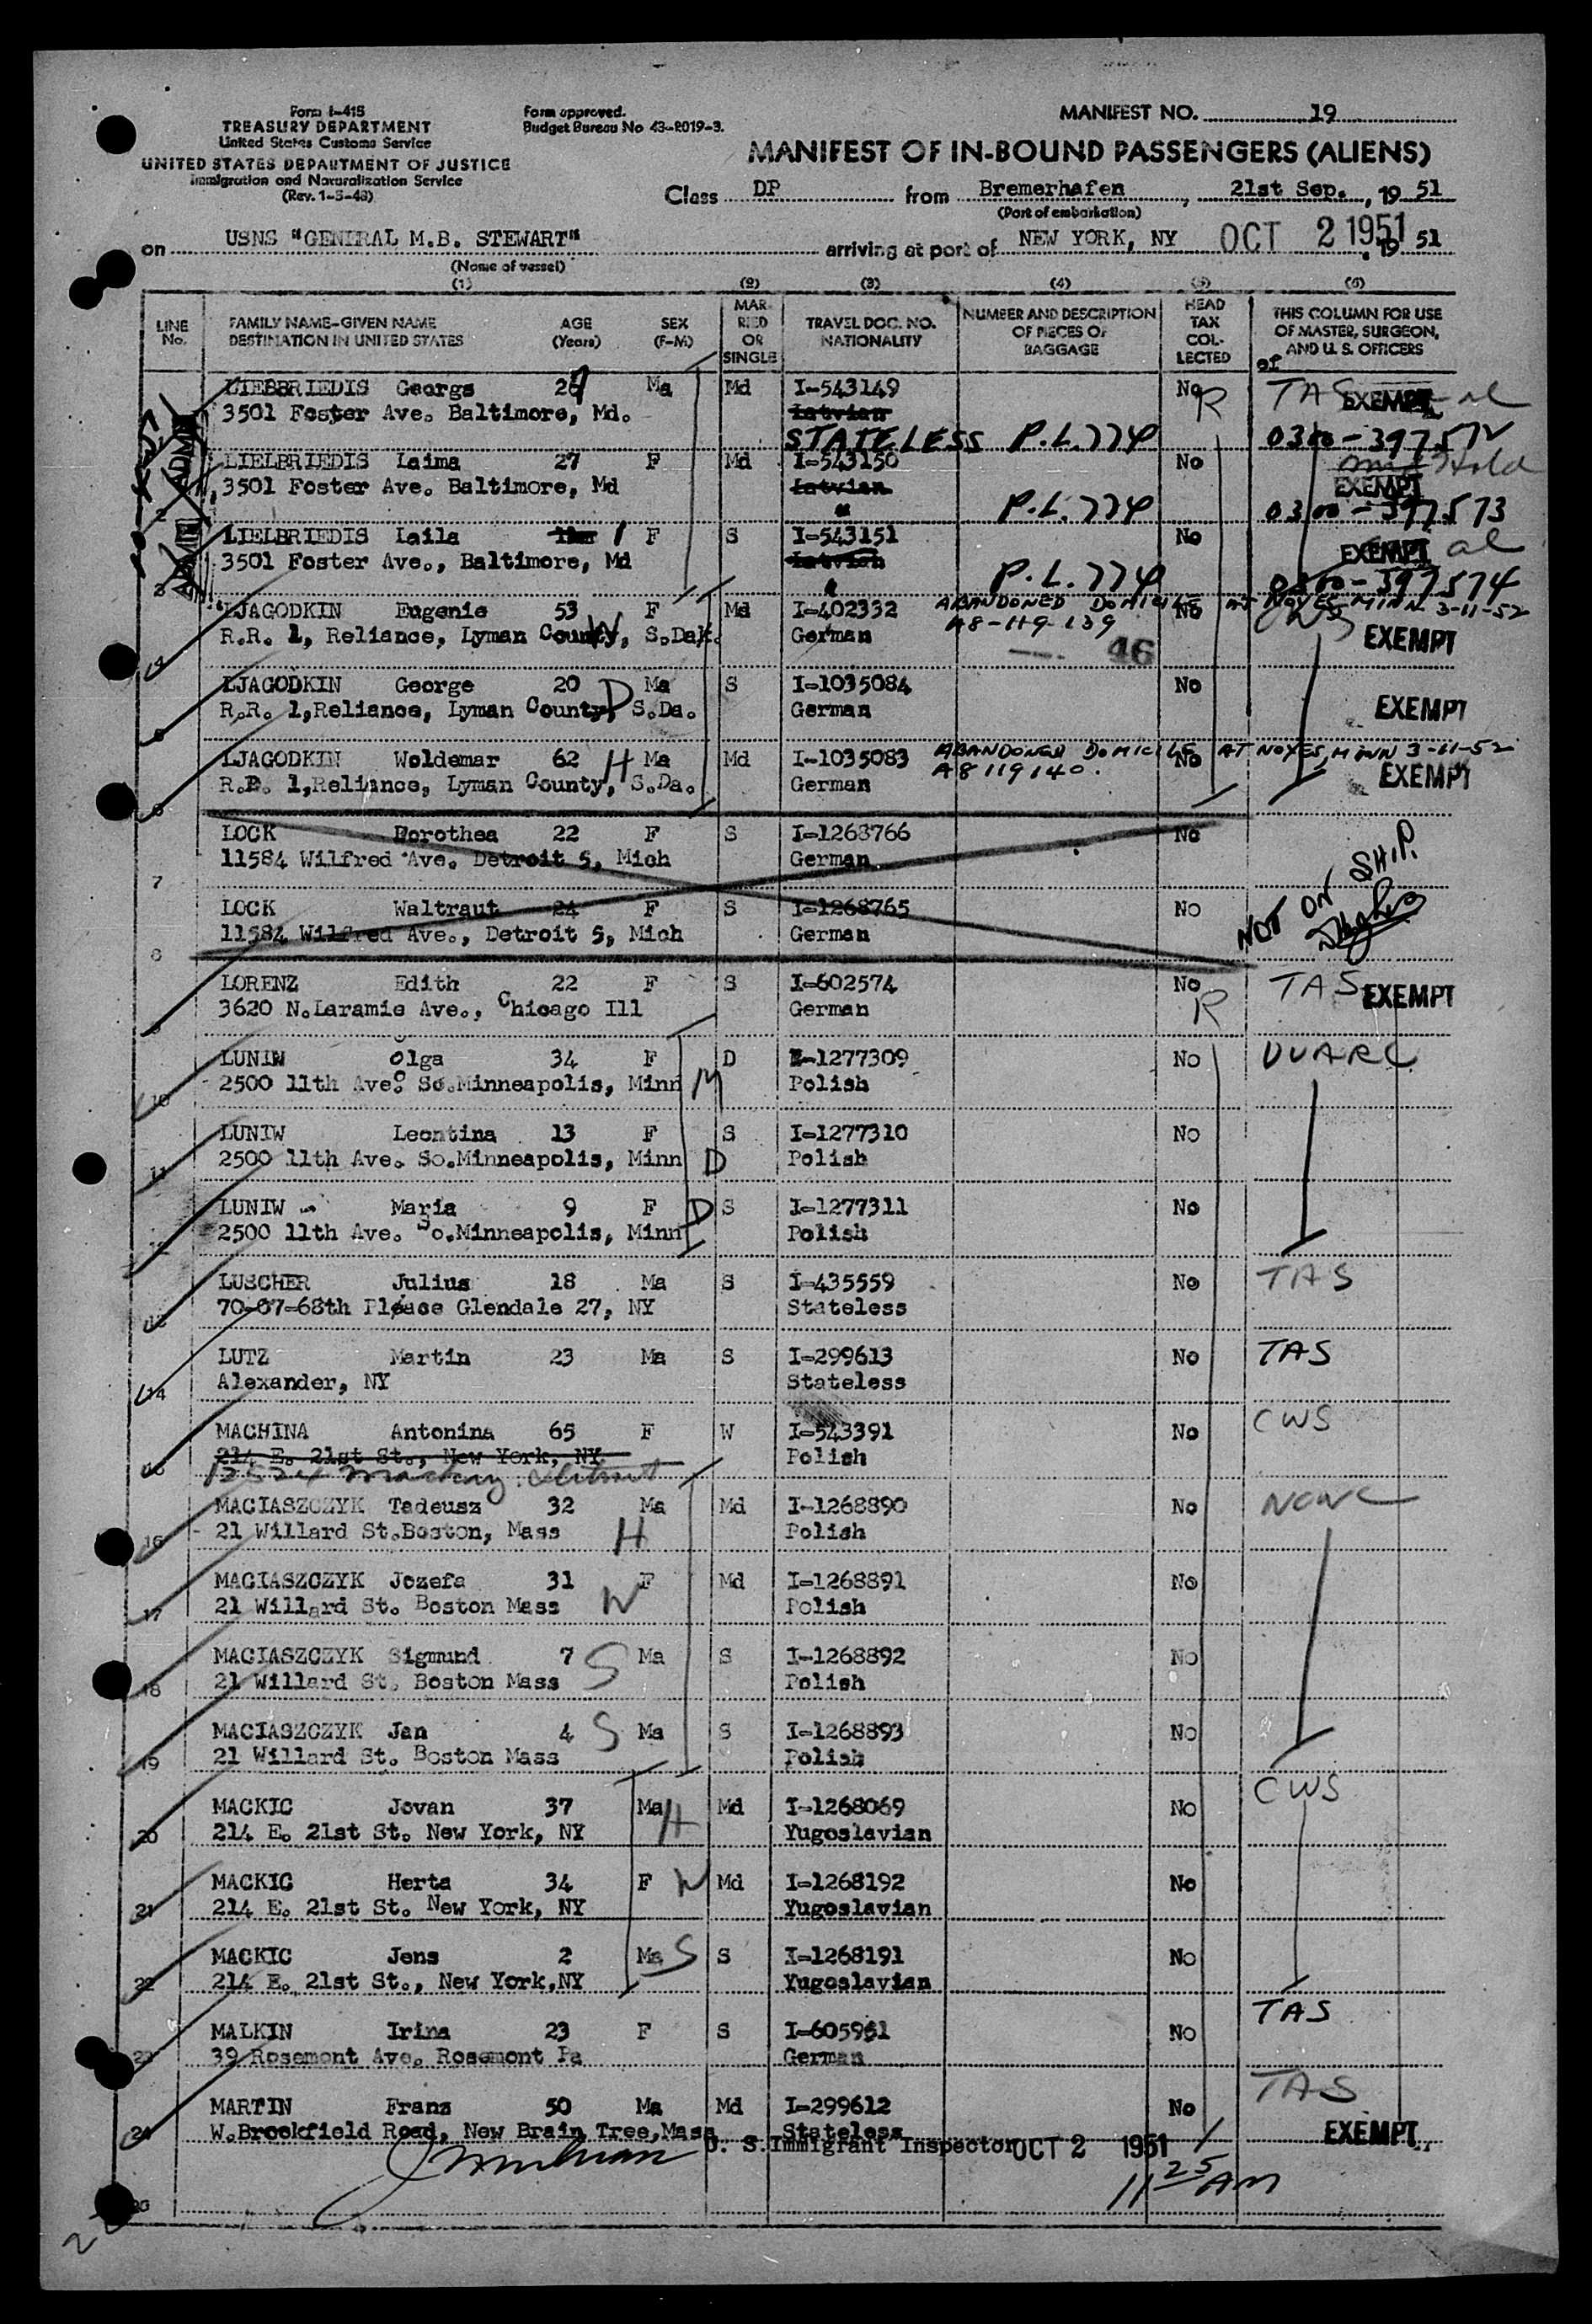 Form I-415
TREASURY DEPARTMENT
United States Customs Service
UNITED STATES DEPARTMENT OF JUSTICE
Immigration and Naturalization Service
(Rev. 1-5-48)
Form approved.
Budget Bureau No 43-R019-3.
MANIFEST NO. 19
MANIFEST OF IN-BOUND PASSENGERS (ALIENS)
Class DP from Bremerhafen, 21st Sep., 19 51
(Port of embarkation)
on USNS "GENERAL M.B. STEWART" arriving at port of NEW YORK, NY OCT 2 1951 19 51
(Name of vessel)
(1) (2) (3) (4) (5) (6)
LINE No. FAMILY NAME-GIVEN NAME DESTINATION IN UNITED STATES AGE (Years) SEX (F-M) MARRIED OR SINGLE TRAVEL DOC. NO. NATIONALITY NUMBER AND DESCRIPTION OF PIECES OF BAGGAGE HEAD TAX COLLECTED THIS COLUMN FOR USE OF MASTER, SURGEON, AND U. S. OFFICERS
LIEBBRIEDIS Georgs 27 Ma Md I-543149 No R TAS EXEMPT
3501 Foster Ave. Baltimore, Md. Latvian
STATELESS P.L. 774 0300-397572
LIELBRIEDIS Laima 27 F Md I-543150 No Hold
3501 Foster Ave. Baltimore, Md Latvian EXEMPT
" P.L. 774 0300-397573
LIELBRIEDIS Laila 1 F S I-543151 No
3501 Foster Ave., Baltimore, Md Latvian EXEMPT
3 " P.L. 774 0300-397574
LJAGODKIN Eugenie 53 F Md I-402332 ABANDONED DOMICILE No AT NOYES MINN 3-11-52
R.R. 1, Reliance, Lyman County, W S.Dak. German A8-119-139 CWS EXEMPT
4 46
LJAGODKIN George 20 D Ma S I-1035084 No
R.R. 1,Reliance, Lyman County, S.Da. German EXEMPT
5
LJAGODKIN Woldemar 62 H Ma Md I-1035083 ABANDONED DOMICILE No AT NOYES, MINN 3-11-52
R.R. 1,Reliance, Lyman County, S.Da. German A8119140. EXEMPT
6
LOCK Dorothea 22 F S I-1268766 No
11584 Wilfred Ave. Detroit 5, Mich German
7
LOCK Waltraut 24 F S I-1268765 No NOT ON SHIP.
11584 Wilfred Ave., Detroit 5, Mich German
8
LORENZ Edith 22 F S I-602574 No R TAS
3620 N.Laramie Ave., Chicago Ill German EXEMPT
9
LUNIW Olga 34 F D I-1277309 No UUARC
2500 11th Ave. So.Minneapolis, Minn M Polish
10
LUNIW Leontina 13 F S I-1277310 No
2500 11th Ave. So.Minneapolis, Minn D Polish
11
LUNIW Maria 9 F D S I-1277311 No
2500 11th Ave. So.Minneapolis, Minn Polish
12
LUSCHER Julius 18 Ma S I-435559 No TAS
70-07-68th Pleace Glendale 27, NY Stateless
13
LUTZ Martin 23 Ma S I-299613 No TAS
Alexander, NY Stateless
14
MACHINA Antonina 65 F W I-543391 No CWS
214 E. 21st St., New York, NY Polish
15
MACIASZCZYK Tadeusz 32 Ma Md I-1268890 No NCWC
21 Willard St.Boston, Mass H Polish
16
MACIASZCZYK Jozefa 31 F Md I-1268891 No
21 Willard St. Boston Mass W Polish
17
MACIASZCZYK Sigmund 7 S Ma S I-1268892 No
21 Willard St. Boston Mass Polish
18
MACIASZCZYK Jan 4 S Ma S I-1268893 No
21 Willard St. Boston Mass Polish
19
MACKIC Jovan 37 Ma H Md I-1268069 No CWS
214 E. 21st St. New York, NY Yugoslavian
20
MACKIC Herta 34 F W Md I-1268192 No
214 E. 21st St. New York, NY Yugoslavian
21
MACKIC Jens 2 Ma S S I-1268191 No
214 E. 21st St., New York,NY Yugoslavian
22
MALKIN Irina 23 F S I-605961 No TAS
39 Rosemont Ave. Rosemont Pa German
23
MARTIN Franz 50 Ma Md I-299612 No TAS
W.Brookfield Road, New Brain Tree,Mass Stateless EXEMPT
24
U. S. Immigrant Inspector OCT 2 1951
11 25 AM